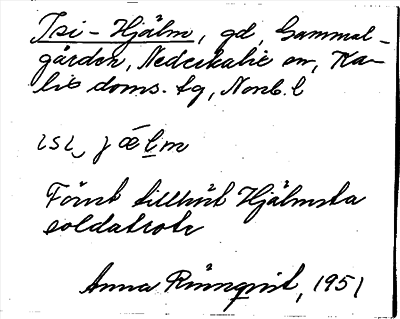 Isi-Hjälm, gd, Gammal-
gården, Nederkalix sn, Ka-
lix doms. tg, Norrb. l
ɩsɩ, jæ̀lm
Först tillhört Hjälmsta
soldatrote
Anna Rönnqvist, 1951